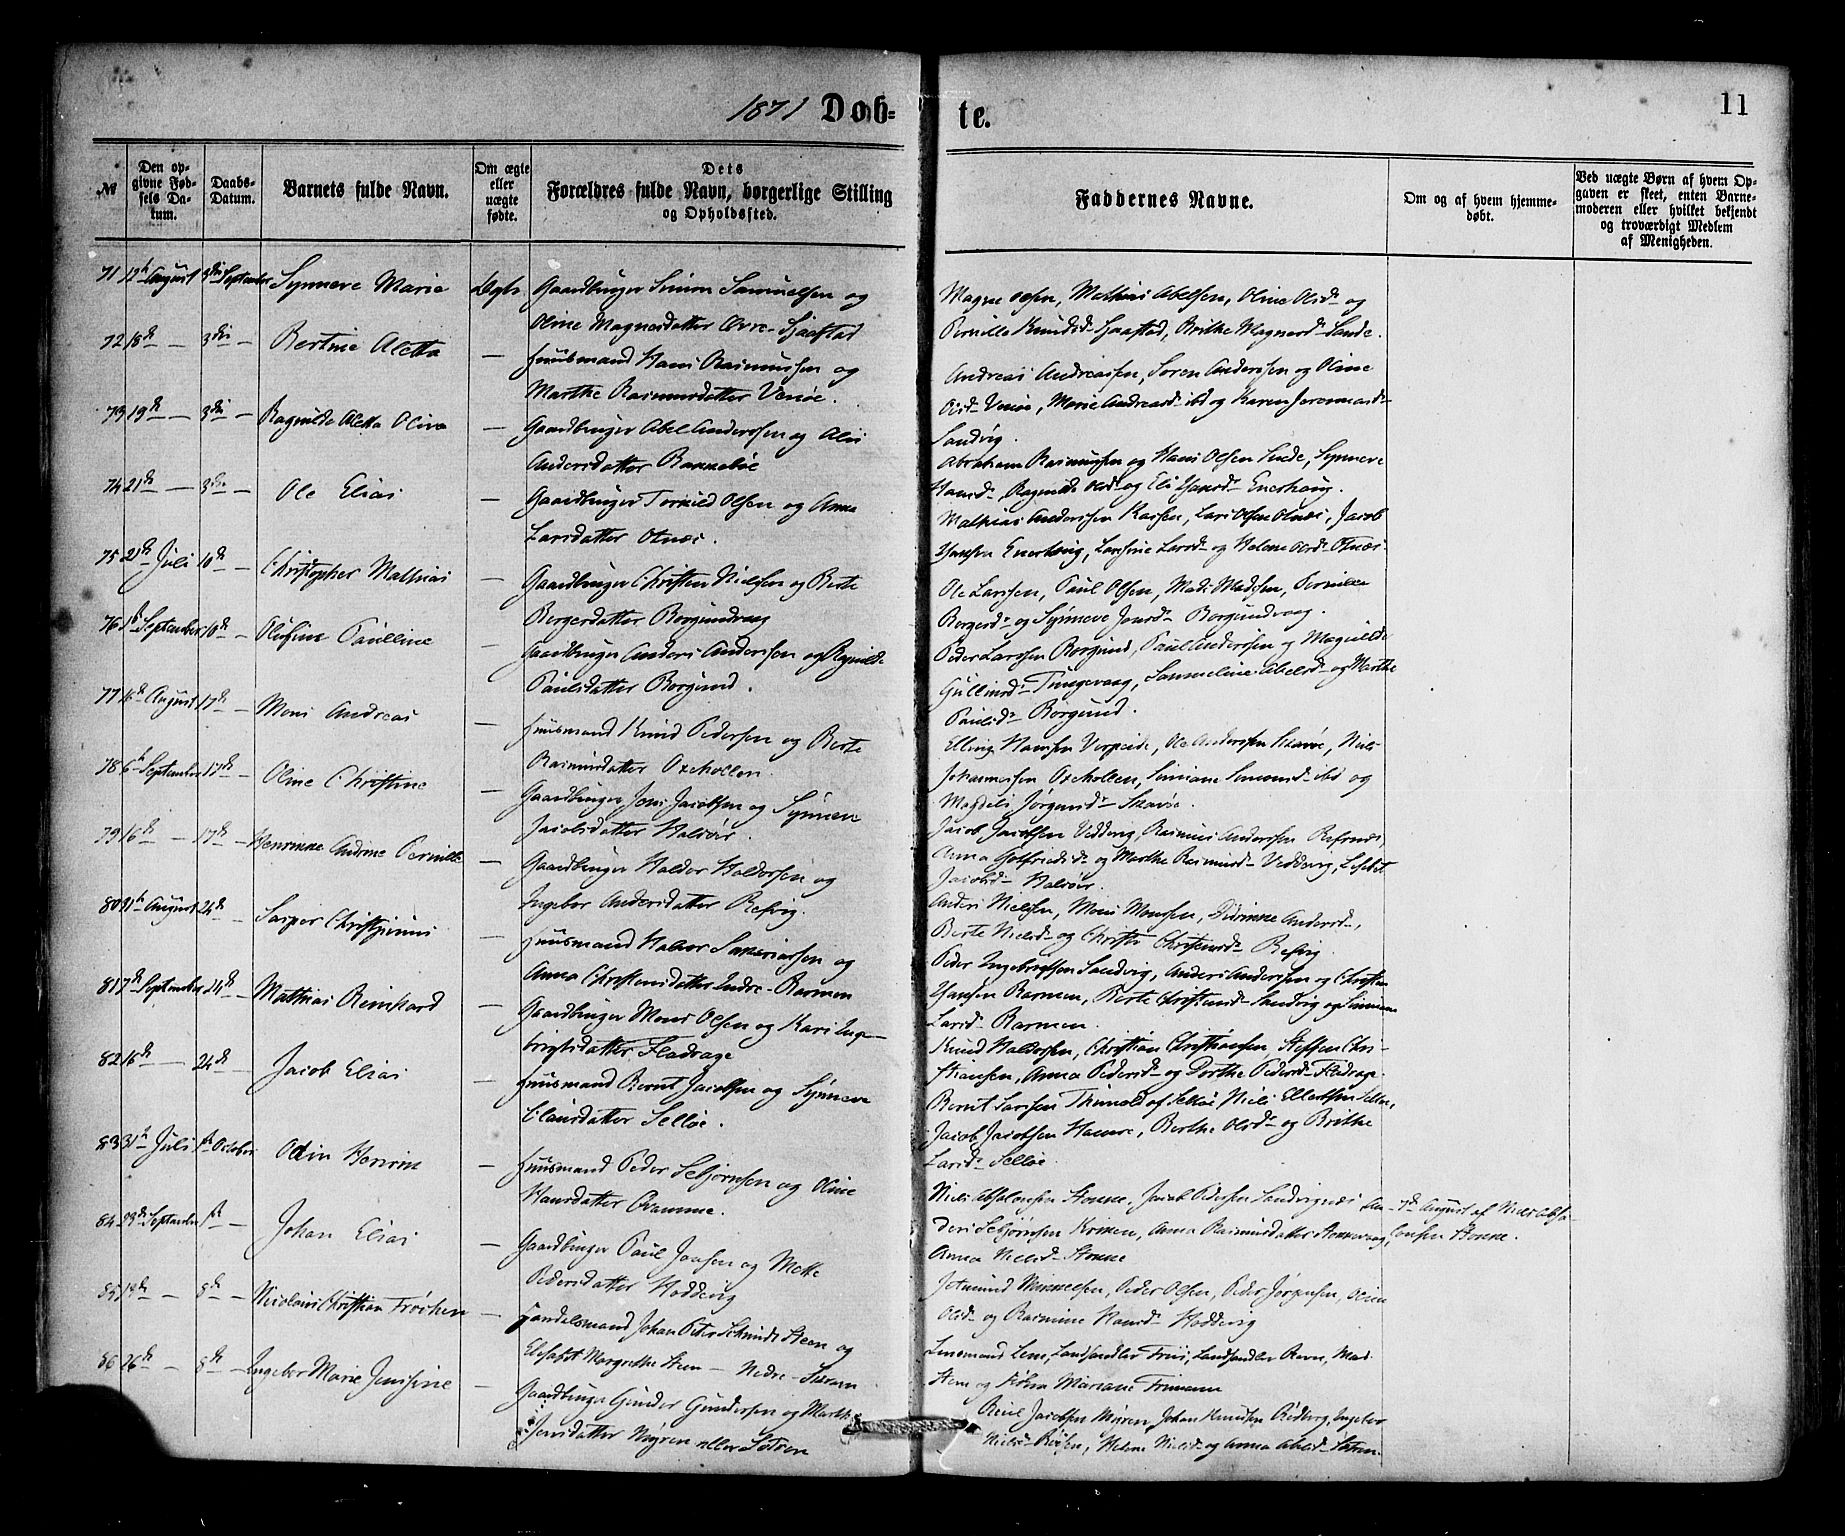 1871 Døb-
te.
11
№
Den opgivne Fødsels Datum.
Daabs-Datum.
Barnets fulde Navn.
Om ægte eller uægte fødte.
Dets Forældres fulde Navn, borgerlige Stilling og Opholdssted.
Faddernes Navne.
Om og af hvem hjemmedøbt.
Ved uægte Børn af hvem Opgaven er skeet, enten Barnemoderen eller hvilket bekjendt og troværdigt Medlem af Menigheden.
71 12te August 3die September Synneve Marie Ægte Gaardbruger Simon Samuelsen og
Oline Magnesdatter Øvre-
Magne Mathias Abelsen, Oline Olsd. og
Pernille Knudsd. Brithe Magnesd. Sande.
72 18de — 3die — Bertine Aletta — Huusmand Hans Rasmussen og
Marthe Rasmusdatter Venøe.
Andreas Andreassen, Søren Anderssen og Oline
Olsd. Venøe, Marie Andreasd. ibd og Karen
Sandvig.
73 19de — 3die — Ragnilde Aletta Oliva — Gaardbruger Abel Anderssen og
Andersdatter
Abraham Rasmussen og Hans Olsen Synneve
Hansd., Ragnilde Olsd. og Eli Hansd.
74 21de — 3die — Ole Elias — Gaardbruger Tornild Olsen og Anna
Larsdatter Otnæs.
Mathias Anderssen Lars Olsen Otnæs, Jacob
Hansen Larsine Larsd. og Helene Olsd. Otnæs.
75 Juli 10de — Christopher Mathias — Gaardbruger Christen Nielsen og Berte
Borgersdatter Borgundvaag
Ole Larssen, Paul Olsen, Mads Madsen, Pernille
Borgersd. og Synneve Jonsd. Borgundvaag.
76 September 10de — Olufine Paulline — Gaardbruger Anders Anderssen og Ragnilde
Paulsdatter Borgund.
Peder Larssen Borgund, Paul Anderssen og Magnilde
Tungevaag, Sammeline Abelsd. og Marthe
Paulsd. Borgund.
77 16de August 17de — Mons Andreas — Huusmand Knud Pedersen og Berte
Rasmusdatter Oxeholen.
Elling Hansen Vorpeide, Ole Anderssen Skavøe, Niels
Johannessen Oxeholen, Simiane Simonsd. ibd og
Magdeli Jørgensd. Skavøe.
78 6te September 17de — Oline Christine — Gaardbruger Jens Jacobsen og Synneve
Jacobsdatter Halsør.
Jacob Jacobsen Vedvig, Rasmus Anderssen Refsnæs,
Anna Gotfriedsd. og Marthe Rasmusd. Vedvig, Lisabet
Jacobsd. Halsør.
79 16de — 17de — Henrikke Andrine Pernille — Gaardbruger Halder Haldersen og
Ingebor Andersdatter Refvig.
Anders Nielsen, Mons Monsen, Didrikke Andersd.,
Berte Nielsd. og Christi Christensd. Refvig.
80 31te August 24de — Christianus — Huusmand Halvor Sakariassen og
Anna Christensdatter Indre-Barmen
Peder Ingebrigtsen Sandvig, Anders Anderssen og Christen
Hansen Barmen, Berte Christensd. Sandvig og
Larsd. Barmen.
81 7de September 24de — Mathias Reinhard — Gaardbruger Mons Olsen og Kari Inge-
brigtsdatter Fladrage
Knud Haldorsen, Christian Christiansen, Steffen Chri-
stiansen, Anna Pedersd. og Dorthe Pedersd. Fladrage.
82 16de — 24de — Jacob Elias — Huusmand Bernt Jacobsen og Synneve
Clausdatter Selløe.
Bernt Larssen Selløe Niels Ellertsen Selløe,
Jacob Jacobsen Hamre, Berthe Olsd. og Brithe
Larsd. Selløe.
83 31te Juli 1ste October Odin Henrik — Huusmand Peder Sebjørnsen og Oline
Hansdatter Qvamme.
Niels Absalonsen Stokke, Jacob Pedersen Sandvignæs An-
ders Sebjørnsen Kriken, Anna Rasmusdatter
Anna Nielsd. Stokke
7de August af Niels Absa-
lonsen Stokke.
84 23de September 1ste — Johan Elias — Gaardbruger Paul Jonsen og Mette
Pedersdatter Hoddevig
Jetmund Mikkelsen, Peder Olsen, Peder Jørgensen, Oline
Olsd. og Rasmine Hansd. Hoddevig
85 18de — 8de — Nicolaus Christian Frøchen — Handelsmand Johan Peter Schmidt Steen og
Elisabet Margrethe Steen — Nedre-
Lensmand Lem, Landhandler Friis, Landhandler Ravn, Mad.
Steen og Mariane Frimann
86 26de — 8de — Ingebor Marie Jensine — Gaardbruger Gunder Gundersen og Marthe
Jensdatter Myren eller
Jacobsen Myren, Johan Knudsen Ingebor
Nielsd. Helene Nielsd. og Anna Abelsd.